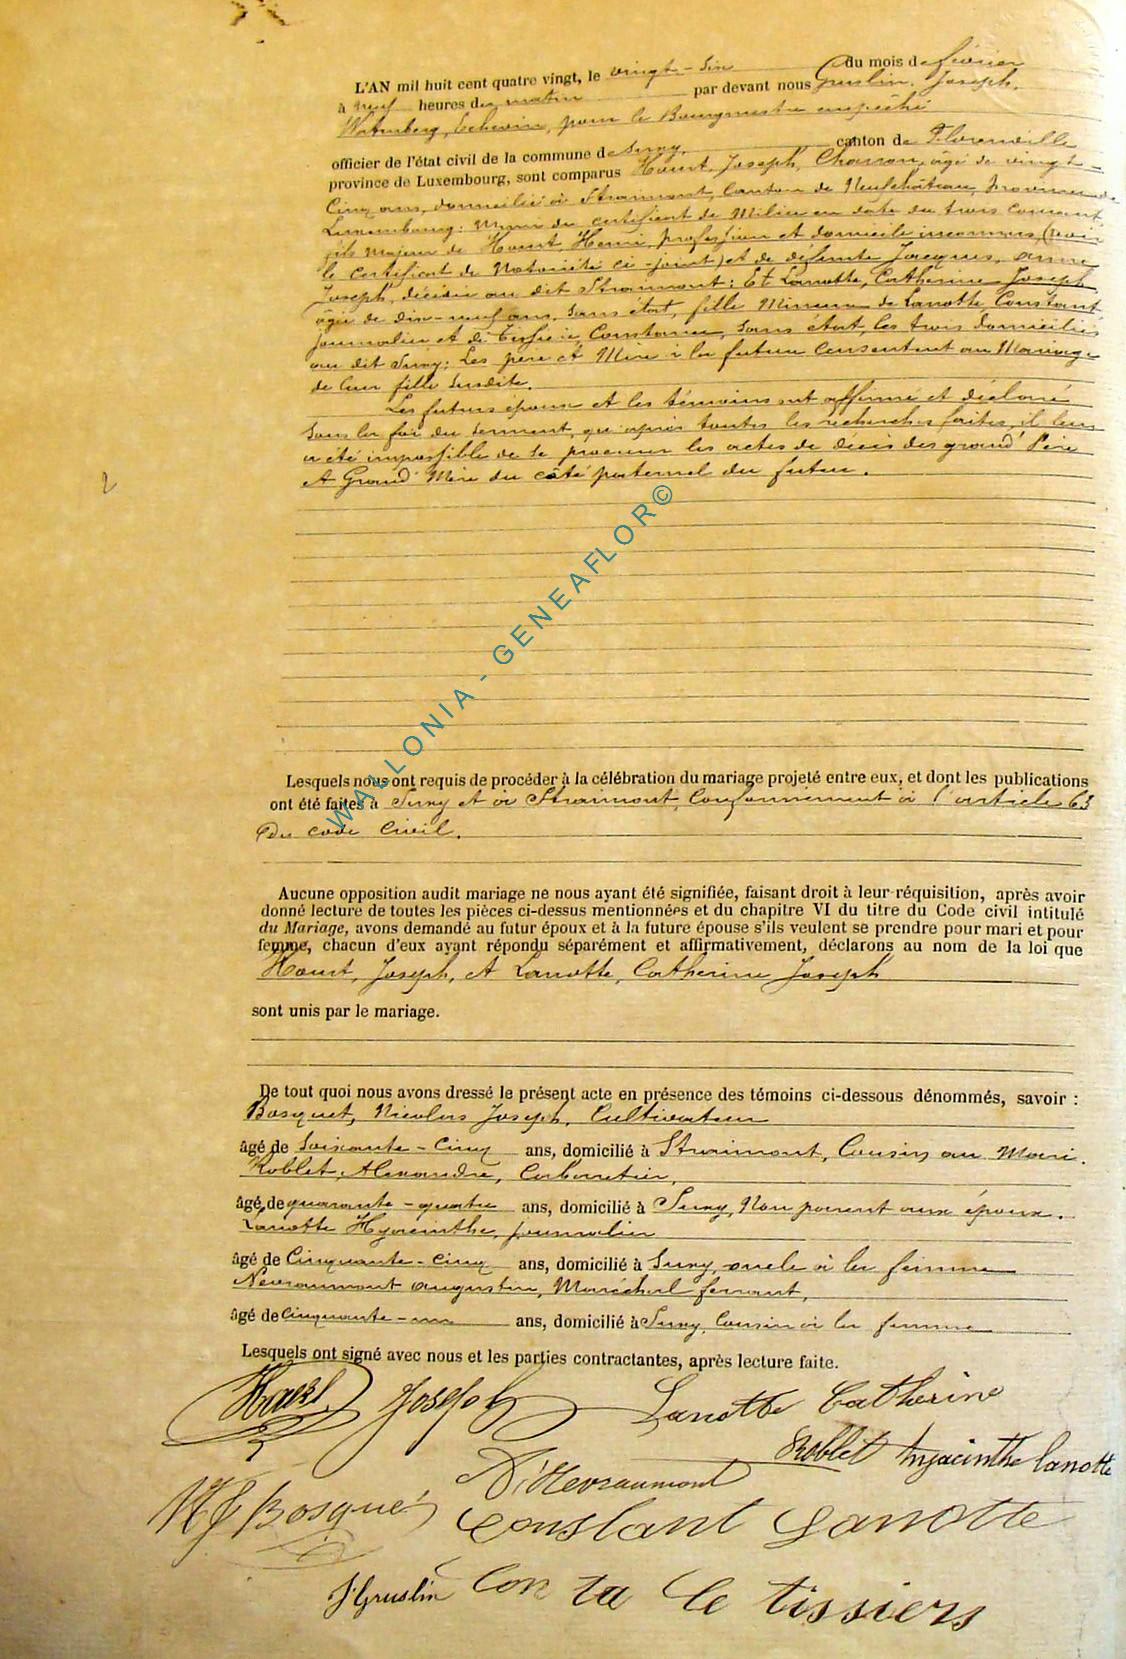 L'AN mil huit cent quatre vingt, le vingt-six du mois de février
à neuf heures du matin par devant nous Gruslin, Joseph,
Watenberg, Echevin, pour le Bourgmestre empêché
officier de l'état civil de la commune de Suxy, canton de Florenville
province de Luxembourg, sont comparus Joseph, Charron, âgé de vingt-
Cinq ans, domicilié à Straimont, Canton de Neufchâteau, province de
Luxembourg: Muni du certificat de Milice en date du trois courant
fils majeur de Henri, profession et domicile inconnus, (voir
le certificat de Notoriété ci-joint) et de défunte Jacques, Anne
Joseph, décédée au dit Straimont; Et Lanotte, Catherine Joseph
âgée de dix-neuf ans, sans état, fille Mineure de Lanotte Constant,
journalier et de Constance, sans état, les trois domiciliés
au dit Suxy; Les père et Mère de la future consentent au Mariage
de leur fille susdite.
Les futurs époux et les témoins ont affirmé et déclaré
sous la foi du serment, qu'après toutes les recherches faites, il leur
a été impossible de se procurer les actes de décès des grand Père
et Grand Mère du côté paternel du futur.
2
WALLONIA - GENEAFLOR©
Lesquels nous ont requis de procéder à la célébration du mariage projeté entre eux, et dont les publications
ont été faites à Suxy et à Straimont, Conformément à l'article 63
Du code civil.
Aucune opposition audit mariage ne nous ayant été signifiée, faisant droit à leur réquisition, après avoir
donné lecture de toutes les pièces ci-dessus mentionnées et du chapitre VI du titre du Code civil intitulé
du Mariage, avons demandé au futur époux et à la future épouse s'ils veulent se prendre pour mari et pour
femme, chacun d'eux ayant répondu séparément et affirmativement, déclarons au nom de la loi que
Joseph, et Lanotte, Catherine Joseph
sont unis par le mariage.
De tout quoi nous avons dressé le présent acte en présence des témoins ci-dessous dénommés, savoir :
Bosquet, Nicolas Joseph, Cultivateur
âgé de Soixante-Cinq ans, domicilié à Straimont, Cousin au Mari.
Roblet, Alexandre, Cabaretier,
âgé de quarante-quatre ans, domicilié à Suxy, Non parent aux époux.
Lanotte Hyacinthe, journalier
âgé de Cinquante-Cinq ans, domicilié à Suxy, oncle à la femme
Nevraumont Augustin, Maréchal ferrant,
âgé de Cinquante-un ans, domicilié à Suxy, Cousin à la femme
Lesquels ont signé avec nous et les parties contractantes, après lecture faite.
Joseph Lanotte Catherine
Roblet hyacinthe lanotte
Nevraumont
NJ Bosquet Constant Lanotte
J Gruslin Con ta Ce tissiers